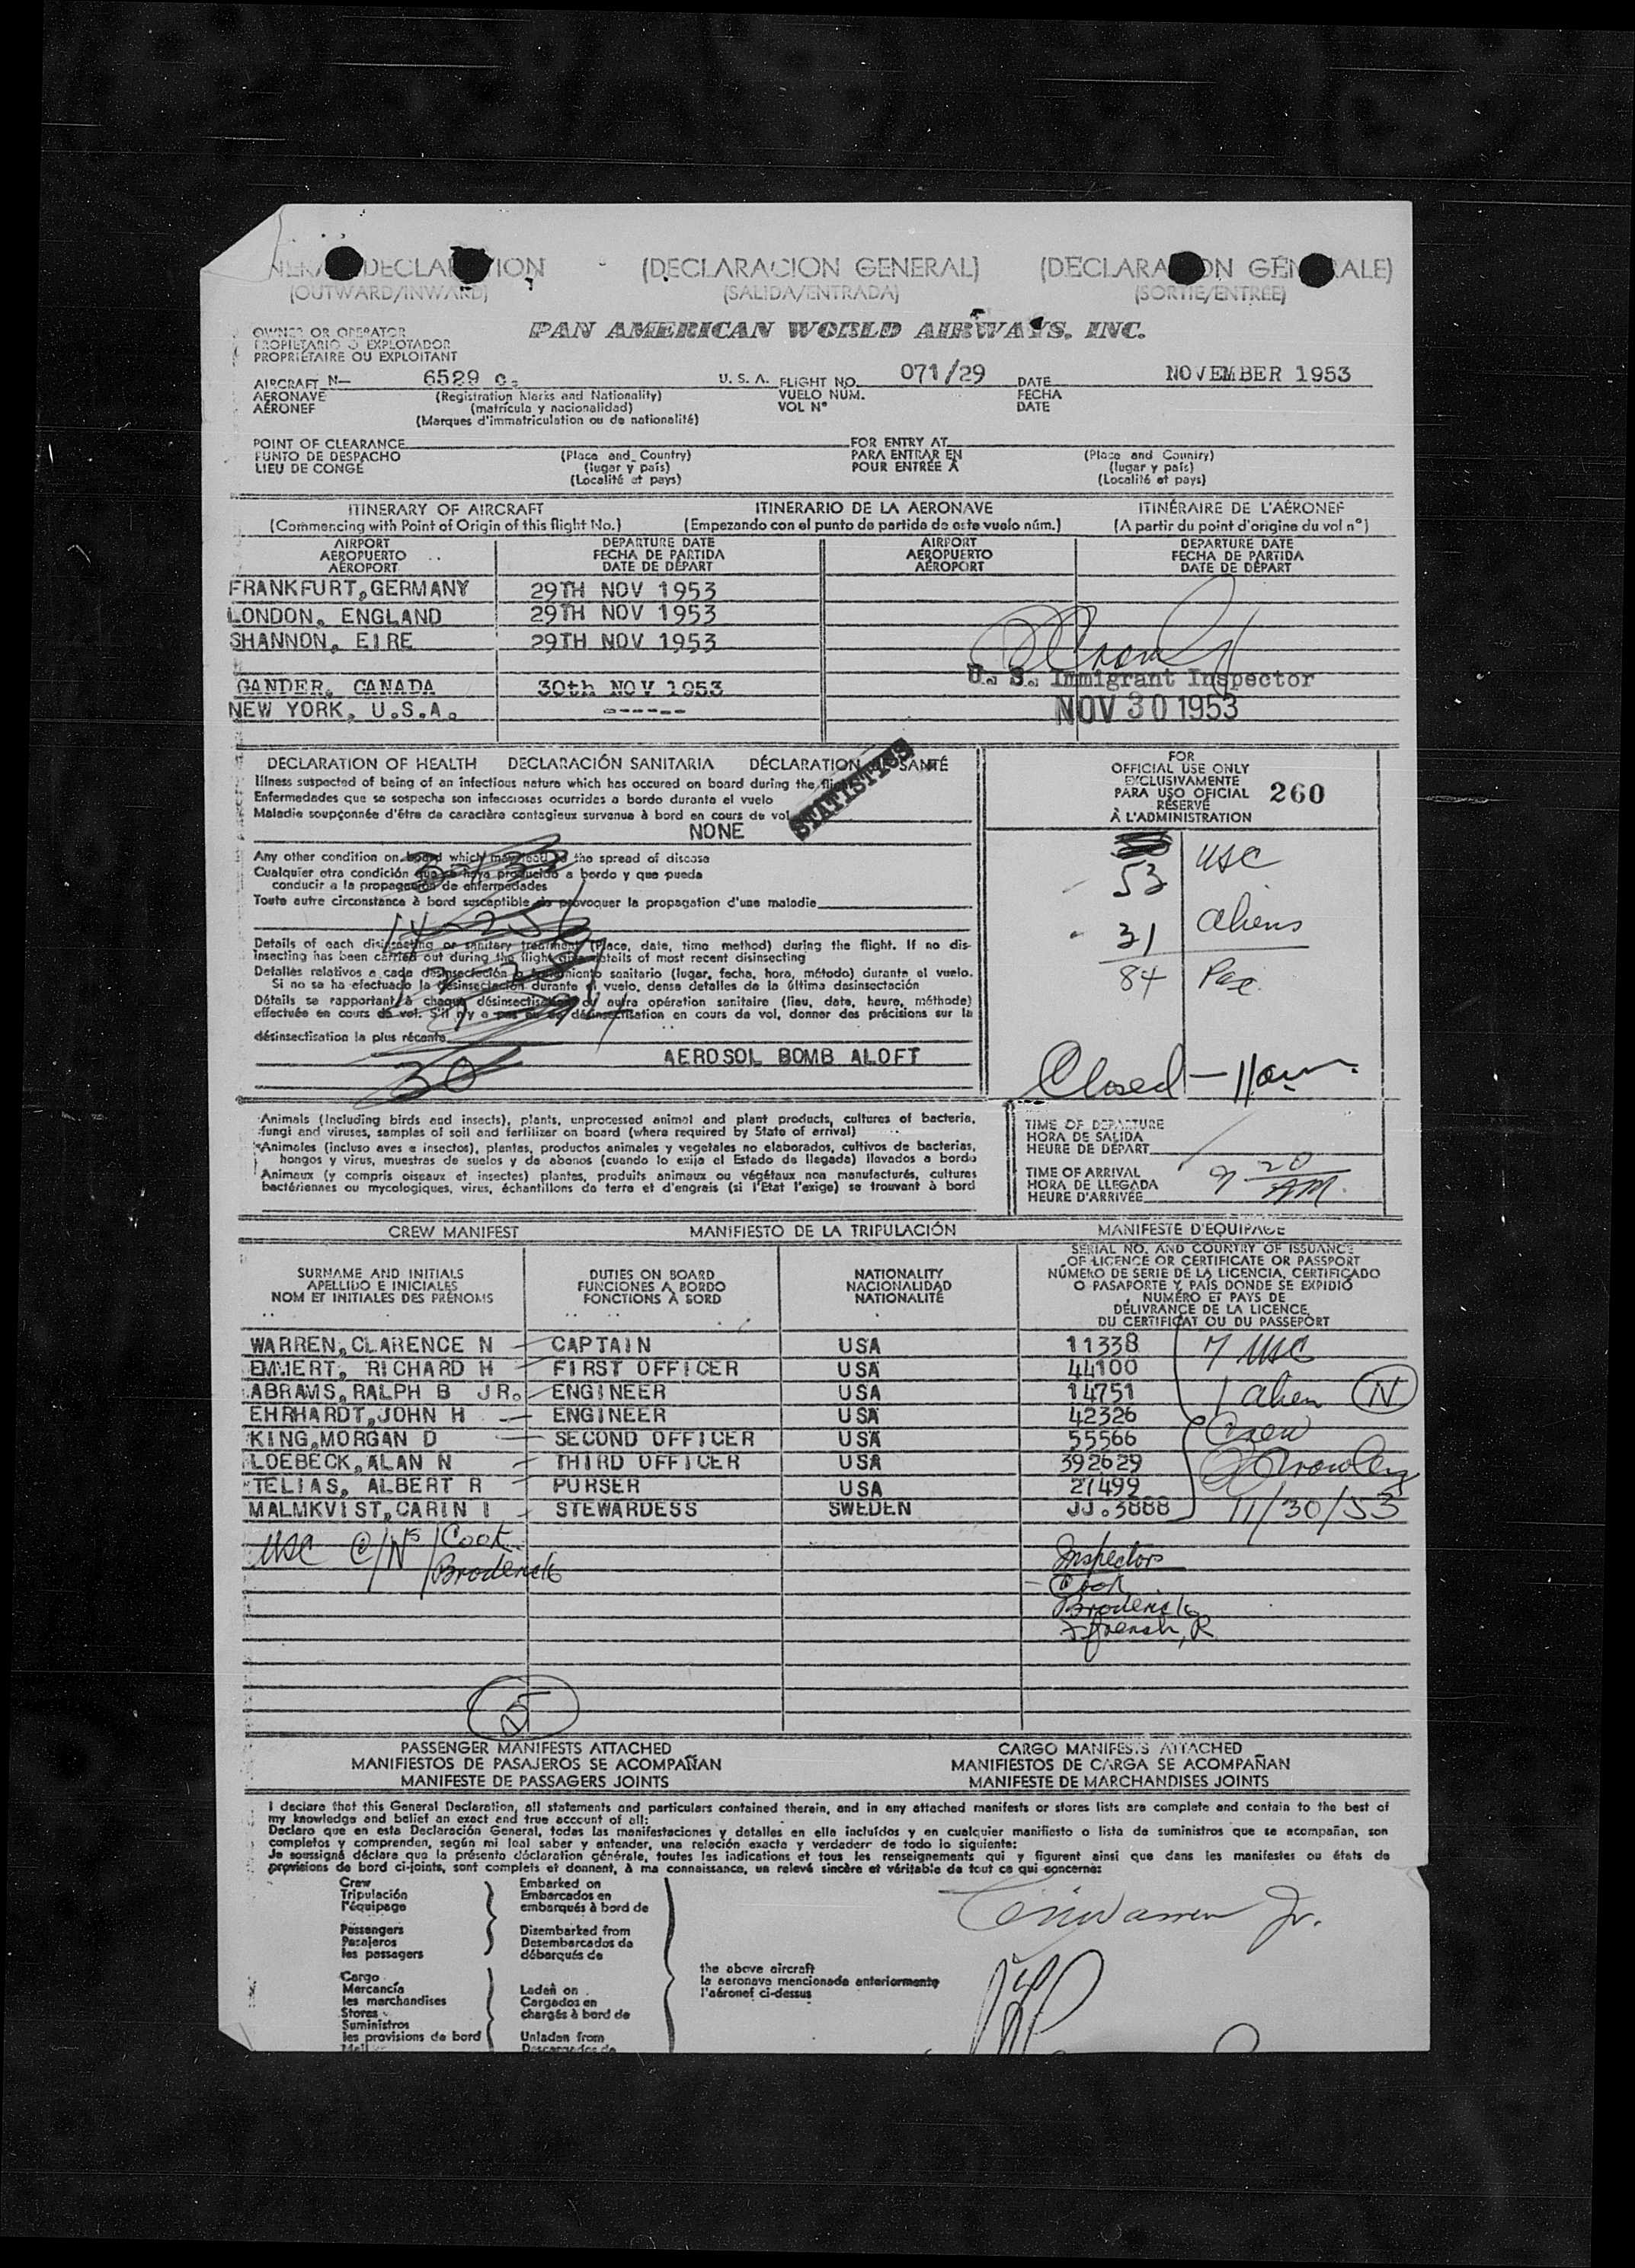 DECLARATION (DECLARACION GENERAL) (DECLARATION GENERALE)
(OUTWARD/INWARD) (SALIDA/ENTRADA) (SORTIE/ENTRÉE)
OWNER OR OPERATOR
PROPIETARIO O EXPLOTADOR
PROPRIÉTAIRE OU EXPLOITANT
PAN AMERICAN WORLD AIRWAYS, INC.
AIRCRAFT N— 6529 C. U. S. A. FLIGHT NO. 071/29 DATE NOVEMBER 1953
AERONAVE (Registration Marks and Nationality) VUELO NÚM. FECHA
AÉRONEF (matrícula y nacionalidad) VOL N° DATE
(Marques d'immatriculation ou de nationalité)
POINT OF CLEARANCE FOR ENTRY AT
PUNTO DE DESPACHO (Place and Country) PARA ENTRAR EN (Place and Country)
LIEU DE CONGÉ (lugar y país) POUR ENTRÉE A (lugar y país)
(Localité et pays) (Localité et pays)
ITINERARY OF AIRCRAFT ITINERARIO DE LA AERONAVE ITINÉRAIRE DE L'AÉRONEF
(Commencing with Point of Origin of this flight No.) (Empezando con el punto de partida de este vuelo núm.) (A partir du point d'origine du vol n°)
AIRPORT DEPARTURE DATE AIRPORT DEPARTURE DATE
AEROPUERTO FECHA DE PARTIDA AEROPUERTO FECHA DE PARTIDA
AÉROPORT DATE DE DÉPART AÉROPORT DATE DE DÉPART
FRANKFURT, GERMANY 29TH NOV 1953
LONDON, ENGLAND 29TH NOV 1953
SHANNON, EIRE 29TH NOV 1953
U. S. Immigrant Inspector
GANDER, CANADA 30th NOV 1953
NEW YORK, U.S.A. ------
NOV 30 1953
DECLARATION OF HEALTH DECLARACIÓN SANITARIA DÉCLARATION SANTÉ
STATISTICS
Illness suspected of being of an infectious nature which has occured on board during the flight
Enfermedades que se sospecha son infecciosas ocurridas a bordo durante el vuelo
Maladie soupçonnée d'être de caractère contagieux survenue à bord en cours de vol
NONE
Any other condition on board which may lead to the spread of disease
Cualquier otra condición que se haya producido a bordo y que pueda
conducir a la propagación de enfermedades
Toute autre circonstance à bord susceptible de provoquer la propagation d'une maladie
Details of each disinsecting or sanitary treatment (Place, date, time method) during the flight. If no dis-
insecting has been carried out during the flight give details of most recent disinsecting
Detalles relativos a cada desinsectación o tratamiento sanitario (lugar, fecha, hora, método) durante el vuelo.
Si no se ha efectuado la desinsectación durante el vuelo, dense detalles de la última desinsectación
Détails se rapportant à chaque désinsectisation ou autre opération sanitaire (lieu, date, heure, méthode)
effectuée en cours de vol. S'il n'y a pas eu de désinsectisation en cours de vol, donner des précisions sur la
désinsectisation la plus récente
30
AEROSOL BOMB ALOFT
FOR
OFFICIAL USE ONLY
EXCLUSIVAMENTE
PARA USO OFICIAL 260
RÉSERVÉ
À L'ADMINISTRATION
53 USC
31 Aliens
84 Pax
Closed - 11am.
Animals (Including birds and insects), plants, unprocessed animal and plant products, cultures of bacteria,
fungi and viruses, samples of soil and fertilizer on board (where required by State of arrival)
Animales (incluso aves e insectos), plantas, productos animales y vegetales no elaborados, cultivos de bacterias,
hongos y virus, muestras de suelos y de abonos (cuando lo exija el Estado de llegada) llevados a bordo
Animaux (y compris oiseaux et insectes) plantes, produits animaux ou végétaux non manufacturés, cultures
bactériennes ou mycologiques, virus, échantillons de terre et d'engrais (si l'Etat l'exige) se trouvant à bord
TIME OF DEPARTURE
HORA DE SALIDA
HEURE DE DÉPART
TIME OF ARRIVAL
HORA DE LLEGADA 9 20 AM.
HEURE D'ARRIVÉE
CREW MANIFEST MANIFIESTO DE LA TRIPULACIÓN MANIFESTE D'EQUIPAGE
SURNAME AND INITIALS
APELLIDO E INICIALES
NOM ET INITIALES DES PRÉNOMS
DUTIES ON BOARD
FUNCIONES A BORDO
FONCTIONS À BORD
NATIONALITY
NACIONALIDAD
NATIONALITÉ
SERIAL NO. AND COUNTRY OF ISSUANCE
OF LICENCE OR CERTIFICATE OR PASSPORT
NÚMERO DE SERIE DE LA LICENCIA, CERTIFICADO
O PASAPORTE Y PAÍS DONDE SE EXPIDIÓ
NUMÉRO ET PAYS DE
DÉLIVRANCE DE LA LICENCE,
DU CERTIFICAT OU DU PASSEPORT
WARREN, CLARENCE N CAPTAIN USA 11338 7 USC
EMMERT, RICHARD H FIRST OFFICER USA 44100
ABRAMS, RALPH B JR. ENGINEER USA 14751 1 alien N
EHRHARDT, JOHN H ENGINEER USA 42326 Crew
KING, MORGAN D SECOND OFFICER USA 55566
LOEBECK, ALAN N THIRD OFFICER USA 392629
TELIAS, ALBERT R PURSER USA 27499
MALMKVIST, CARIN I STEWARDESS SWEDEN JJ.3888 11/30/53
USC C/Ns Cook
Broderick
Inspectors
Cook
Broderick
5
PASSENGER MANIFESTS ATTACHED CARGO MANIFESTS ATTACHED
MANIFIESTOS DE PASAJEROS SE ACOMPAÑAN MANIFIESTOS DE CARGA SE ACOMPAÑAN
MANIFESTE DE PASSAGERS JOINTS MANIFESTE DE MARCHANDISES JOINTS
I declare that this General Declaration, all statements and particulars contained therein, and in any attached manifests or stores lists are complete and contain to the best of
my knowledge and belief an exact and true account of all:
Declaro que en esta Declaración General, todas las manifestaciones y detalles en ella incluídos y en cualquier manifiesto o lista de suministros que se acompañan, son
completos y comprenden, según mi leal saber y entender, una relación exacta y verdaderr de todo lo siguiente:
Je soussigné déclare que la présente déclaration générale, toutes les indications et tous les renseignements qui y figurent ainsi que dans les manifestes ou états de
provisions de bord ci-joints, sont complets et donnent, à ma connaissance, un relevé sincère et véritable de tout ce qui concerne:
Crew
Tripulación
l'équipage
Passengers
Pasajeros
les passagers
Cargo
Mercancía
les marchandises
Stores
Suministros
les provisions de bord
Mail
Embarked on
Embarcados en
embarqués à bord de
Disembarked from
Desembarcados de
débarqués de
Laden on
Cargados en
chargés à bord de
Unladen from
Descargados de
the above aircraft
la aeronave mencionada anteriormente
l'aéronef ci-dessus